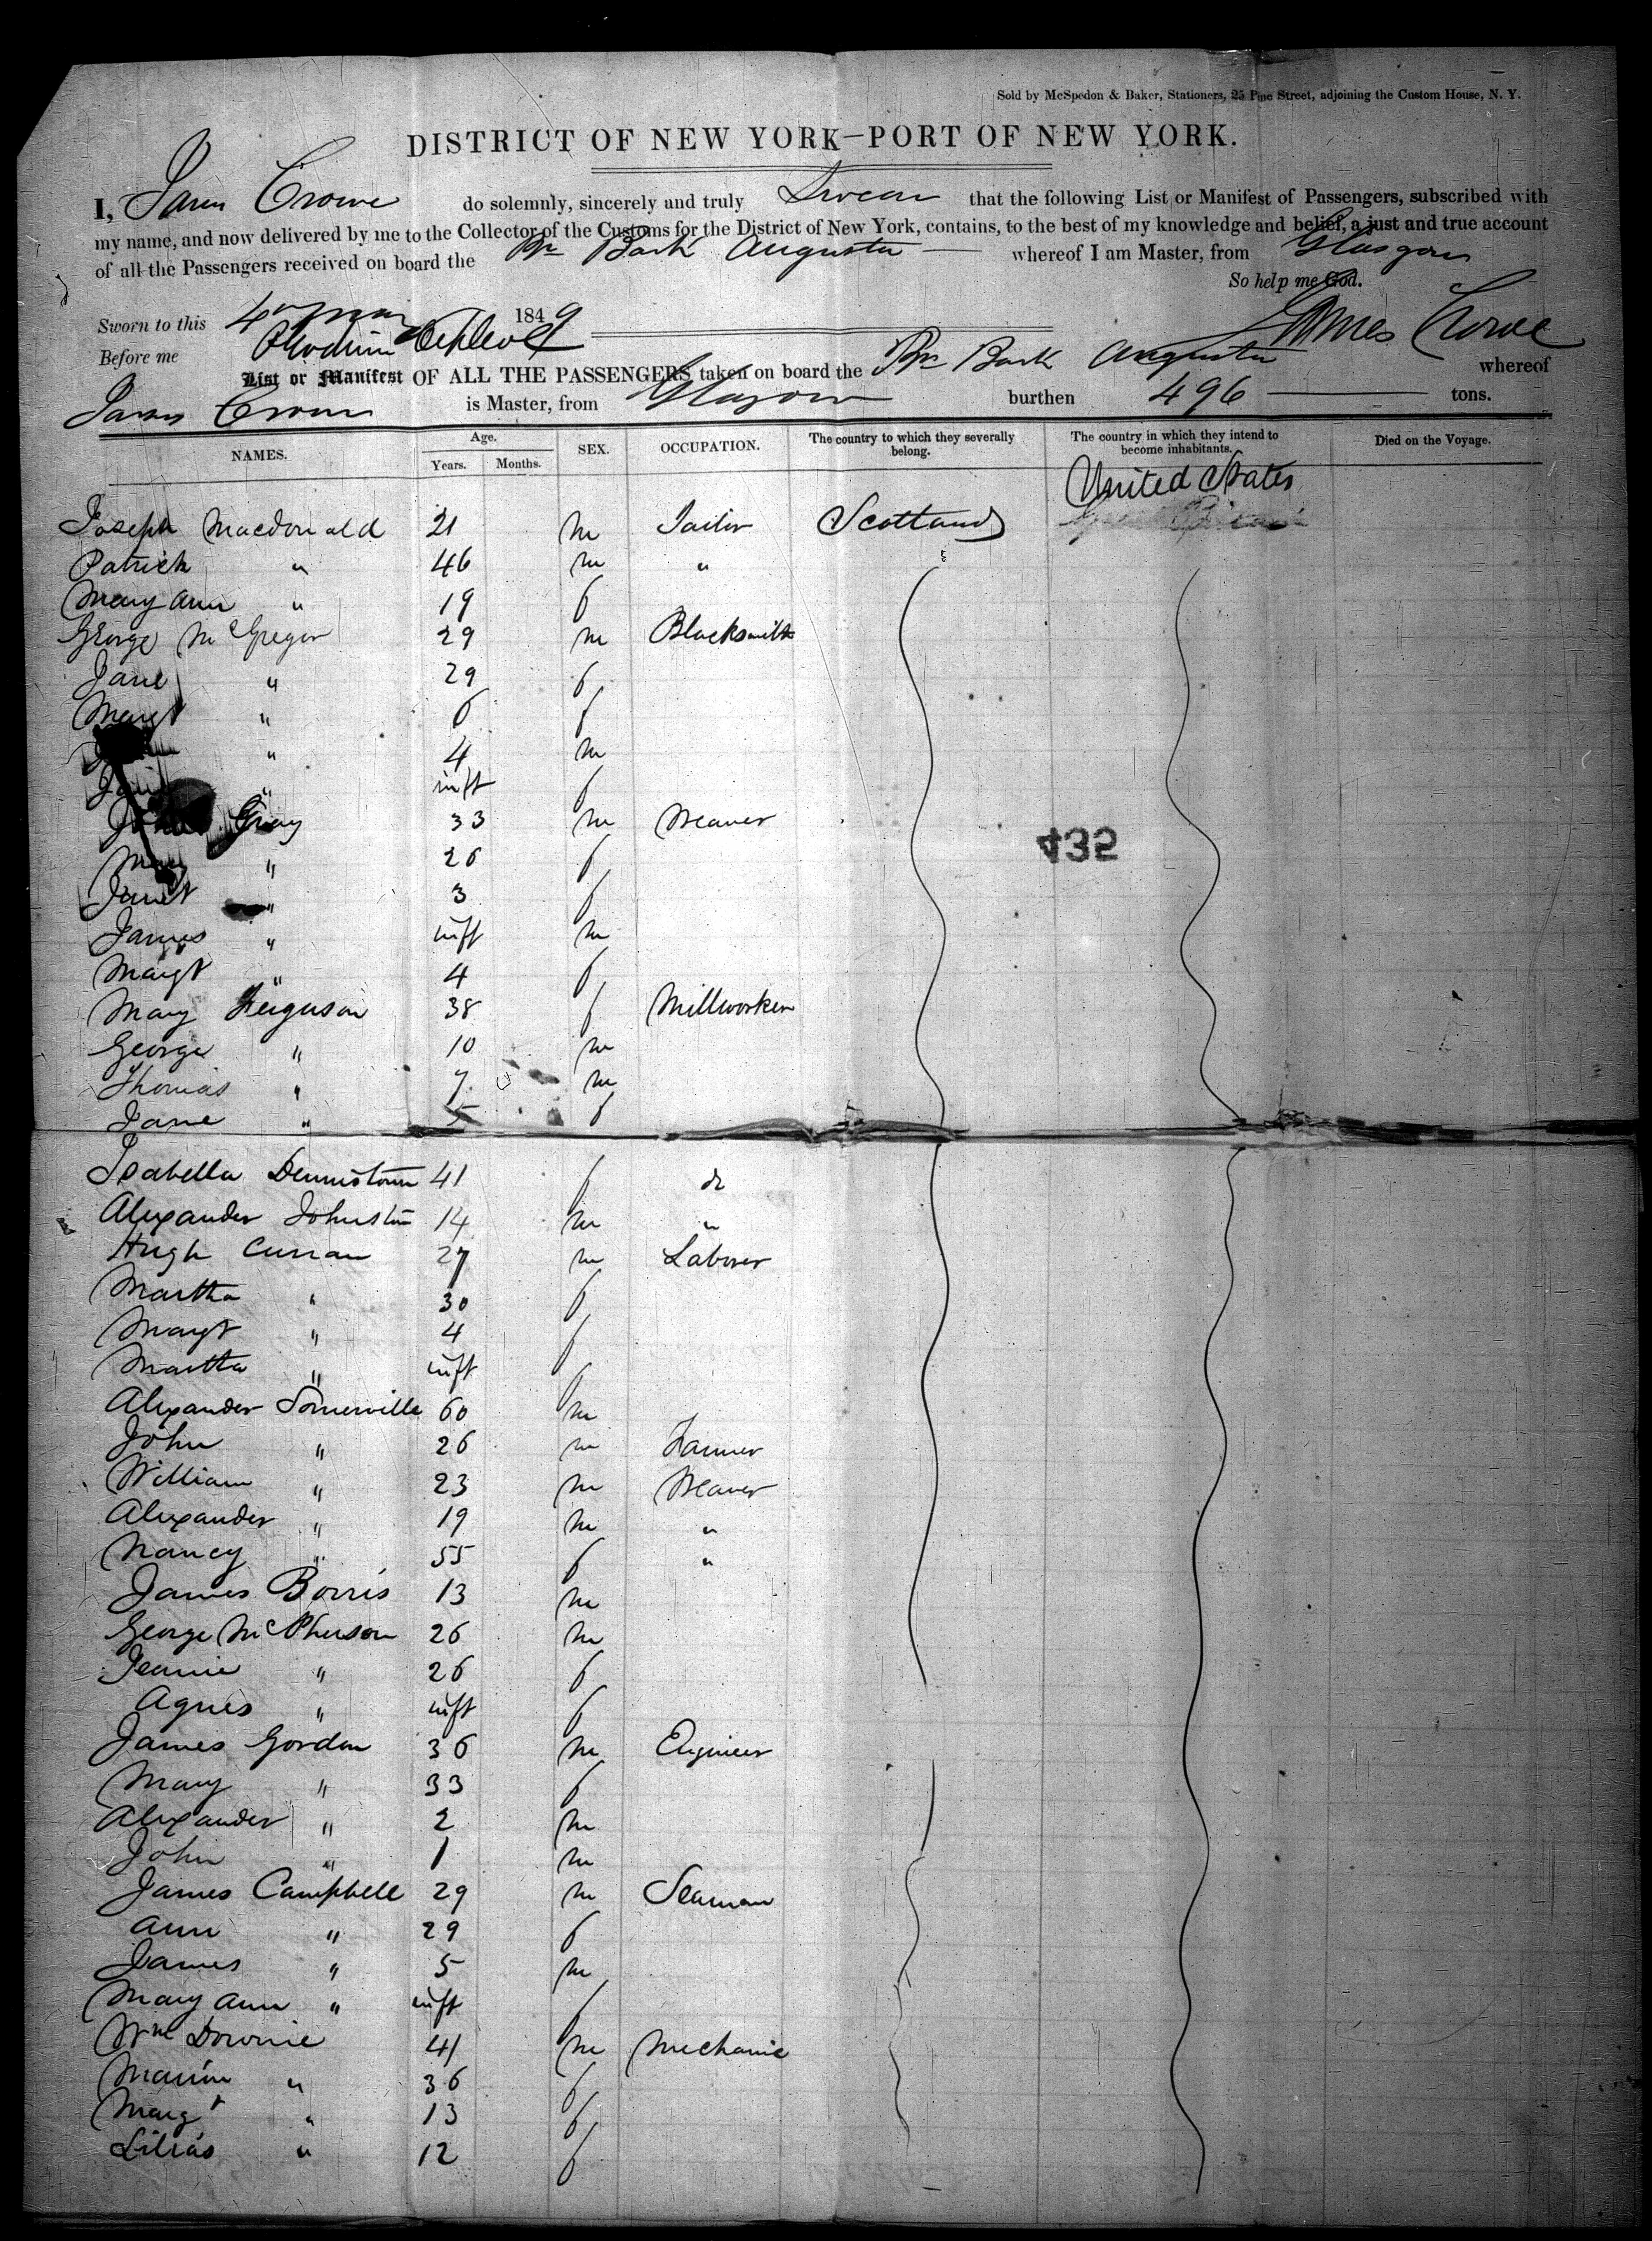 Sold by McSpedon & Baker, Stationers, 25 Pine Street, adjoining the Custom House, N. Y.
DISTRICT OF NEW YORK—PORT OF NEW YORK.
I, James Crowe do solemnly, sincerely and truly Swear that the following List or Manifest of Passengers, subscribed with
my name, and now delivered by me to the Collector of the Customs for the District of New York, contains, to the best of my knowledge and belief, a just and true account
of all the Passengers received on board the Br Bark Augusta whereof I am Master, from Glasgow
So help me God.
Sworn to this 4th May 1849
James Crowe
Before me
List or Manifest OF ALL THE PASSENGERS taken on board the Br Bark Augusta whereof
James Crowe is Master, from Glasgow burthen 496 tons.
NAMES. Age. Years. Months. SEX. OCCUPATION. The country to which they severally belong. The country in which they intend to become inhabitants. Died on the Voyage.
United States
Joseph Macdonald 21 m Tailor Scotland
Patrick " 46 m "
Mary Ann " 19 f
George McGregor 29 m Blacksmith
Jane " 29 f
Margt " 6 f
" 4 m
" inft f
Gray 33 m Weaver
435
Mary " 26 f
Janet " 3 f
James " inft m
Margt " 4 f
Mary Ferguson 38 f Millworker
George " 10 m
Thomas " 7 m
Jane " 5 f
Isabella Dennistoun 41 f do
Alexander Johnston 14 m "
Hugh Curran 27 m Laborer
Martha " 30 f
Margt " 4 f
Martha " inft f
Alexander Somerville 60 m
John " 26 m Farmer
William " 23 m Weaver
Alexander " 19 m "
Nancy " 55 f "
James Borris 13 m
George McPherson 26 m
Jeanie " 26 f
Agnes " inft f
James Gordon 36 m Engineer
Mary " 33 f
Alexander " 2 m
John " 1 m
James Campbell 29 m Seaman
Ann " 29 f
James " 5 m
Mary Ann " inft f
Wm Downie 41 m Mechanic
Marion " 36 f
Margt " 13 f
Lilias " 12 f